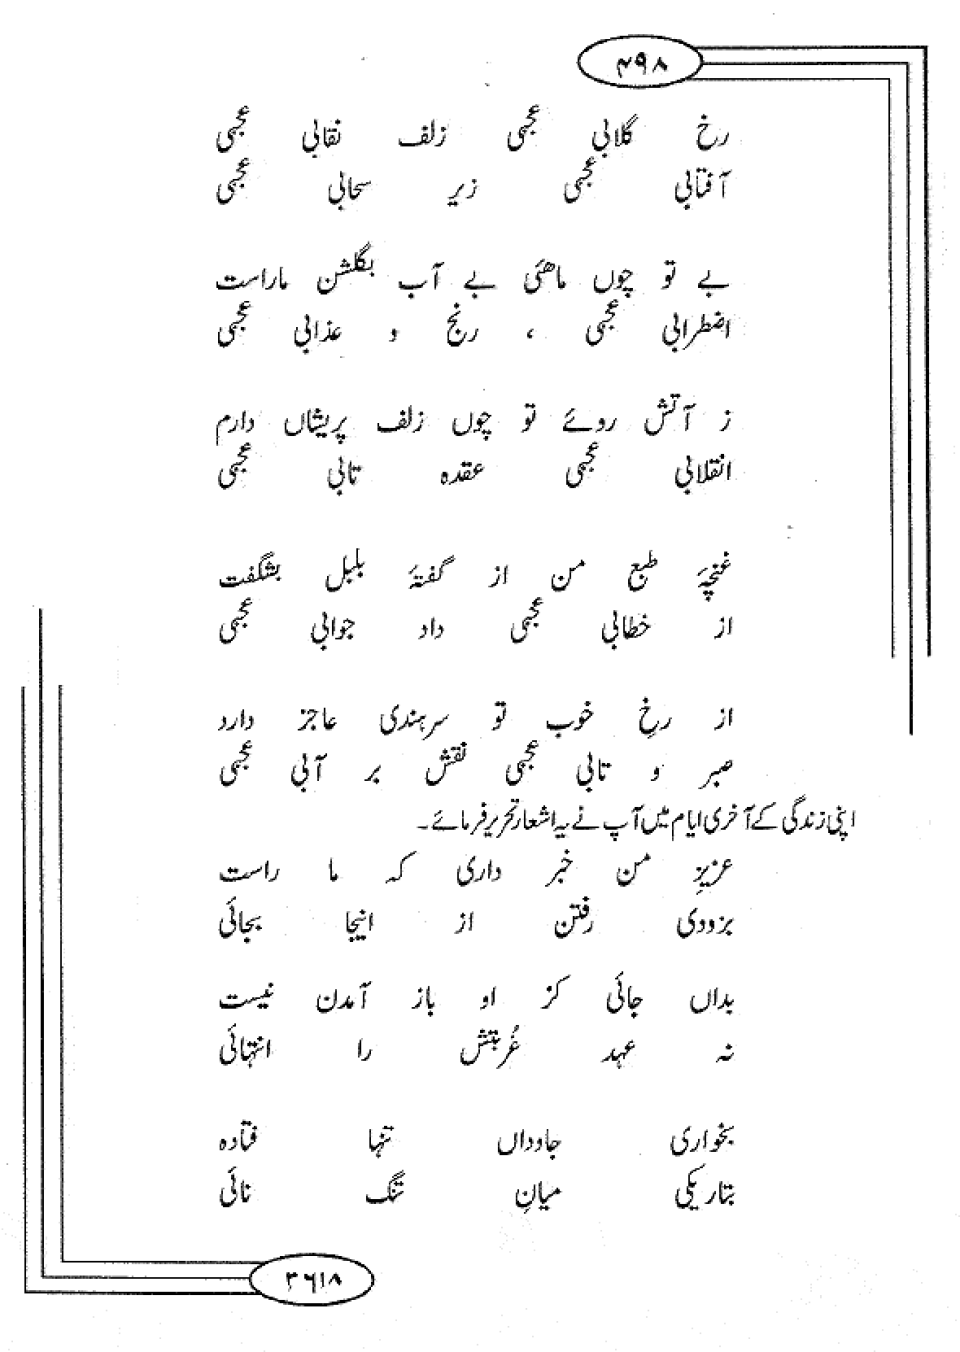 ۴۹۸
رخ گلابی عجمی زلف نقابی عجمی
آفتابی عجمی زیر سحابی عجمی
بے تو چوں ماھئی بے آب بگلشن ماراست
اضطرابی عجمی ، رنج و عذابی عجمی
ز آتش روئے تو چوں زلف پریشاں دارم
انقلابی عجمی عقدہ تابی عجمی
غنچۂ طبع من از گفتۂ بلبل بشگفت
از خطابی عجمی داد جوابی عجمی
از رخِ خوب تو سرہندی عاجز دارد
صبر و تابی عجمی نقش بر آبی عجمی
اپنی زندگی کے آخری ایام میں آپ نے یہ اشعار تحریر فرمائے۔
عزیزِ من خبر داری کہ ما راست
بزودی رفتن از اینجا بجائی
بداں جائی کز او باز آمدن نیست
نہ عہد غُربتش را انتہائی
بخواری جاوداں تنہا فتادہ
بتاریکی میانِ تنگ نائی
۳۶۱۸